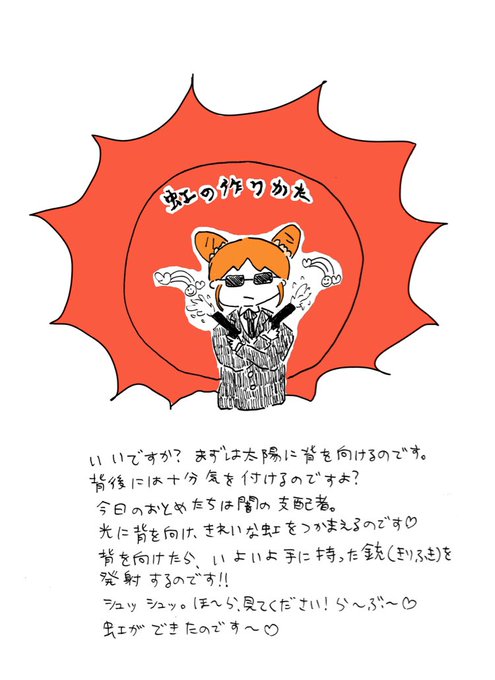 虹の作りかた
いいですか? まずは太陽に背を向けるのです。
背後には十分気を付けるのですよ?
今日のおとめたちは闇の支配者。
光に背を向け、きれいな虹をつかまえるのです♡
背を向けたら、いよいよ手に持った銃(きりふき)を
発射するのです!!
シュッシュッ。ほ〜ら、見てください! ら〜ぶ〜♡
虹ができたのです〜♡